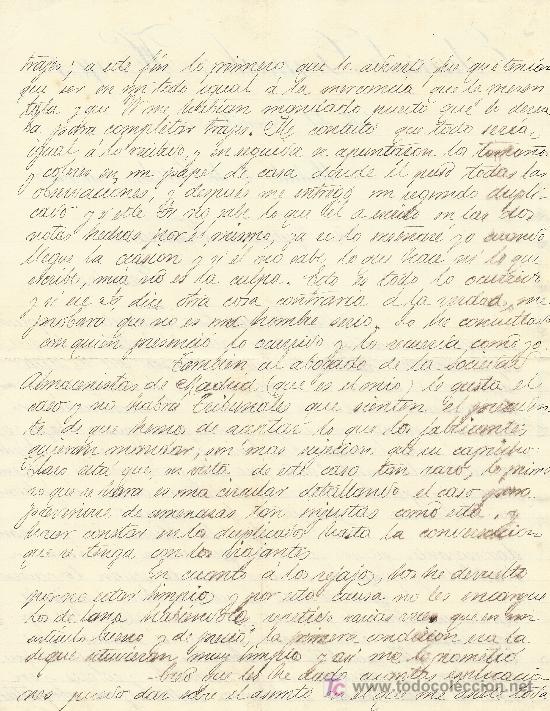 trajes; a este fin lo primero que le advertí fué que tenían
que ser en un todo igual á la mercancia que le meren
taba y que Vms habían mandado puesto que lo desea
ba para completar trajes. Me contestó que todo sería
igual á lo recibido, y en seguida se apuntaron los tamaños
y colores en mi papel de casa donde el puso todas las
observaciones, y después me entregó un segundo dupli
cado y si este Sr no sabe lo que él a escrito en las dos
notas hechas por el mismo, ya se lo enseñaré yo cuando
llegue la ocasión y si el no sabe lo que hace ni lo que
escribe, mia no es la culpa. Esto es todo lo ocurrido
y si ese Sr dice otra cosa contraria á la verdad, me
probará que no es un hombre serio. Lo he consultado
con quien presenció lo ocurrido y lo recuerda como yo.
También al abogado de la Sociedad
Almacenistas de Madrid (que es el mio) le gusta el
caso y no habrá Tribunales que sienten el preceden
te de que hemos de aceptar lo que los fabricantes
quieran mandar, sin mas razon que su capricho.
Claro está que, en vista de este caso tan raro, lo prime
ro que se hara es una circular detallando el caso para
prevenirse de amenazas tan injustas como esta, y
hacer constar en los duplicados hasta la conversación
que se tenga con los viajantes.
En cuanto á los refajos, los he devuelto
por no estar limpios y por esta causa no les encargué
los de lana habiéndole repetido varias veces que en un
artículo bueno y de precio, la primera condición era la
de que estuvieran muy limpios y así me lo prometió
Creo que les he dado cuantas explicacio
nes puedo dar sobre el asunto
www.todocoleccion.net